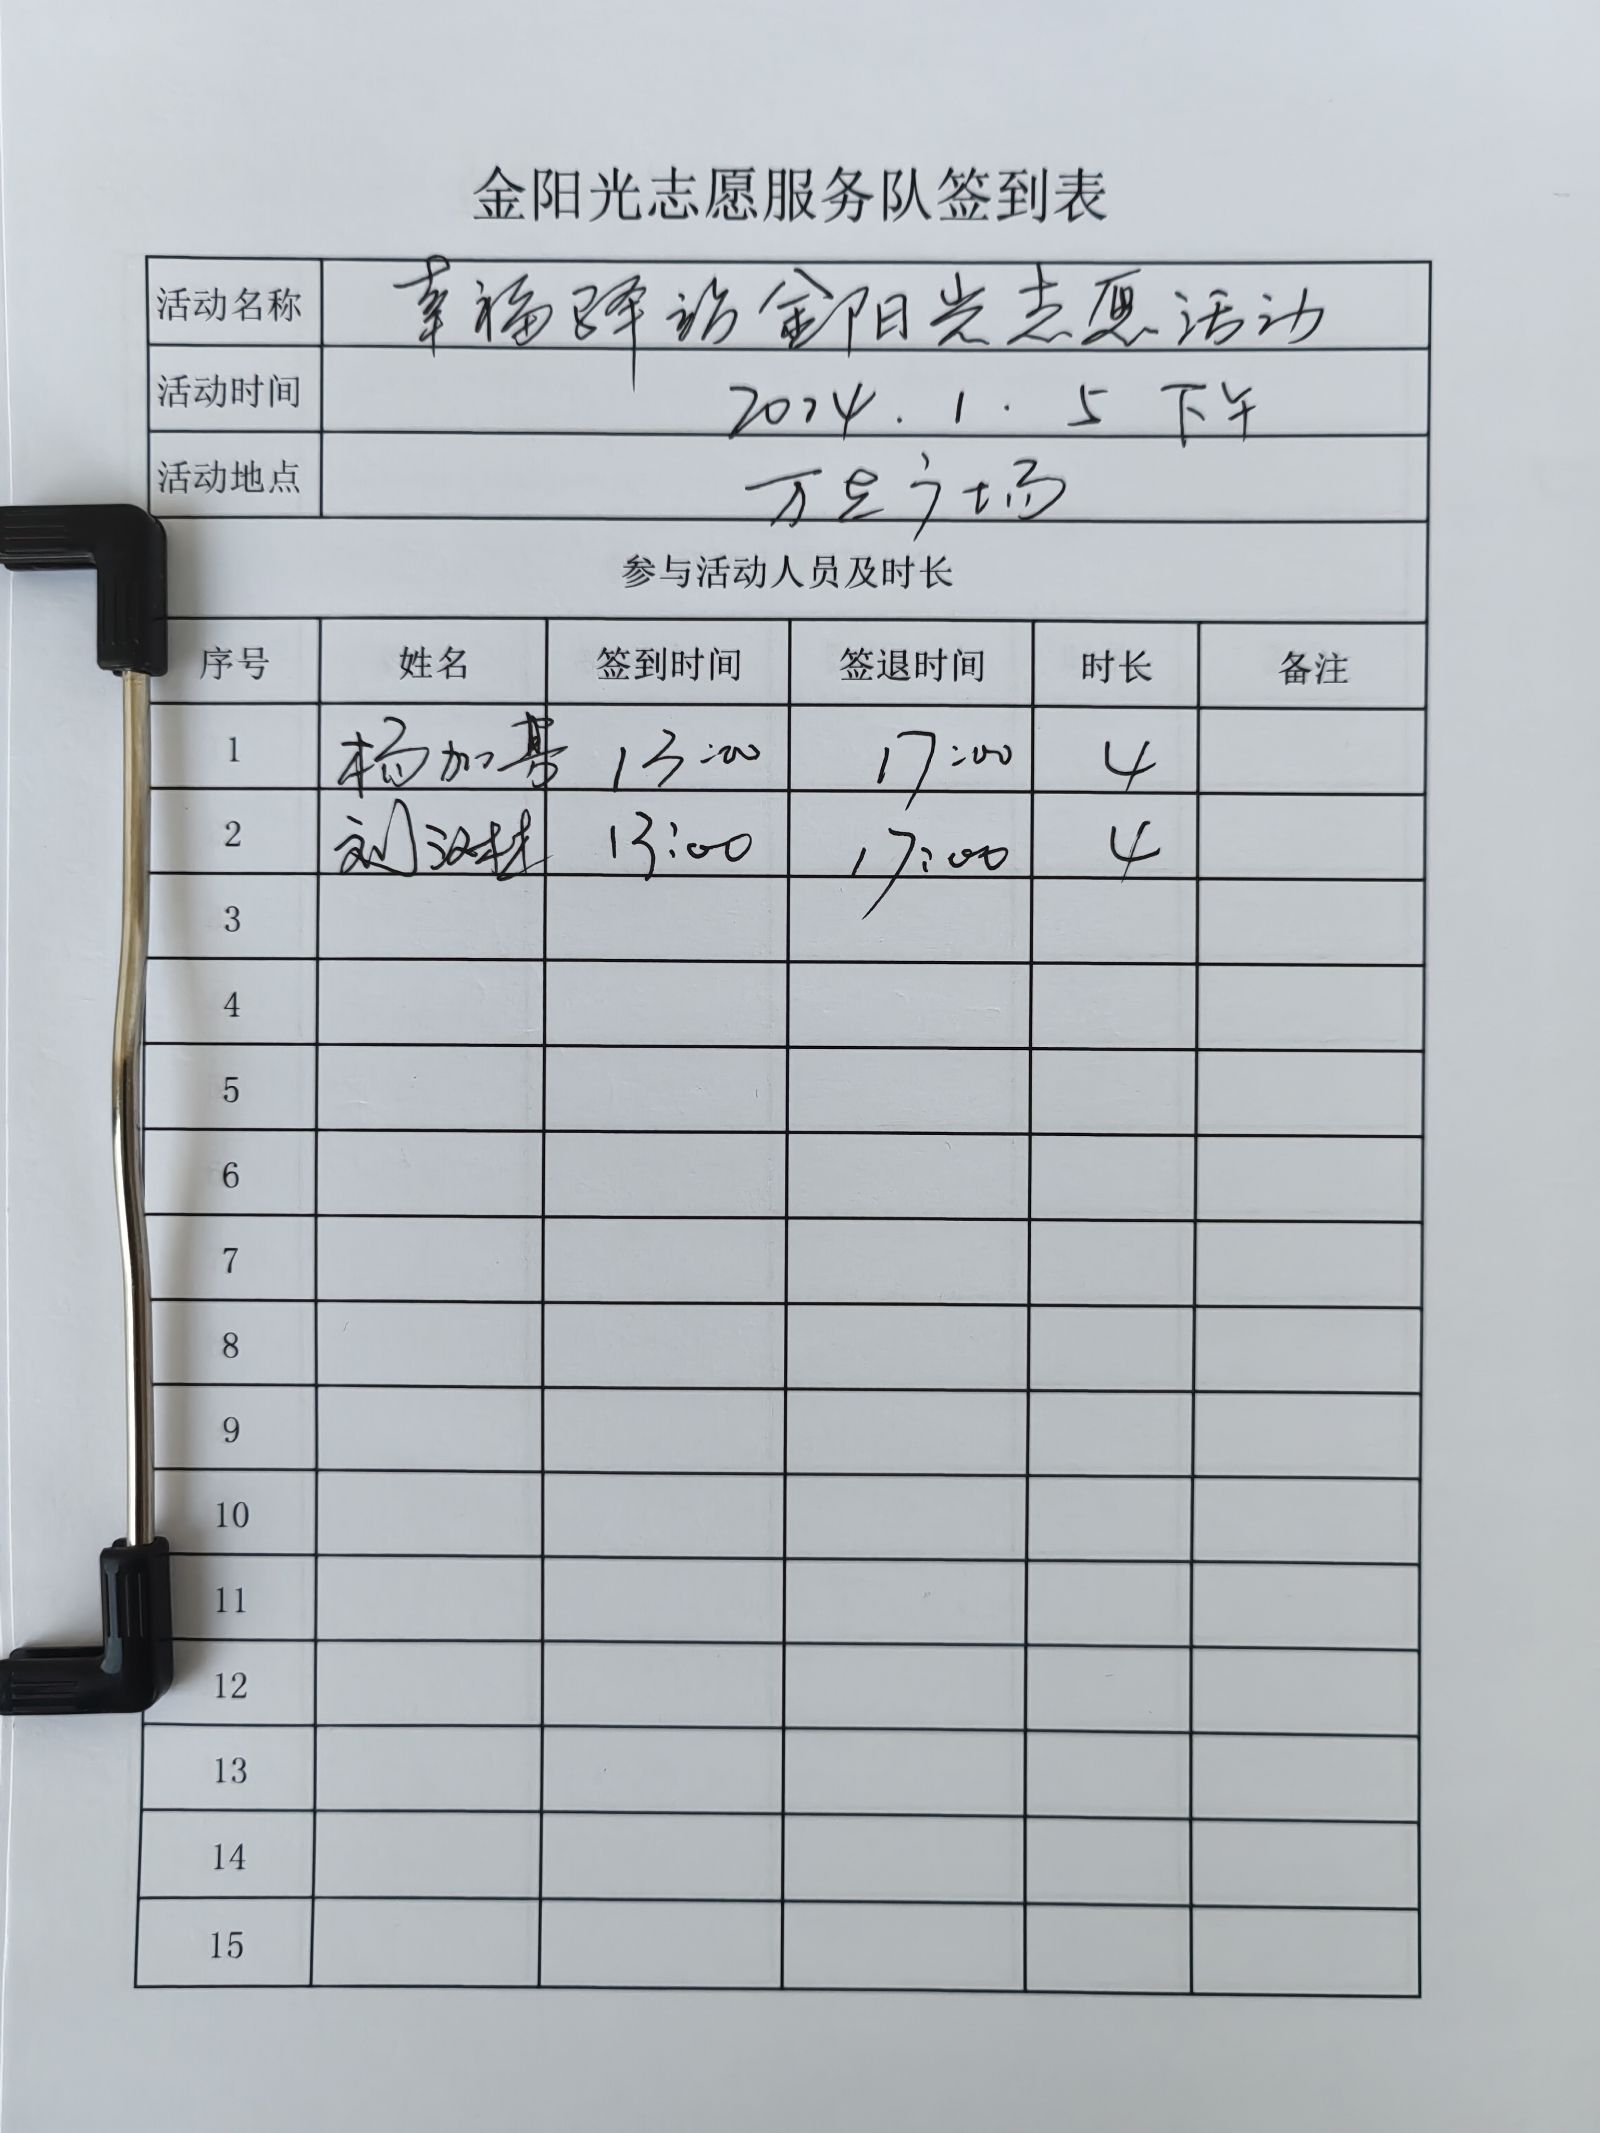 金阳光志愿服务队签到表
活动名称 幸福驿站金阳光志愿活动
活动时间 2024.1.5 下午
活动地点 万达广场
参与活动人员及时长
序号 姓名 签到时间 签退时间 时长 备注
1 杨加 13:00 17:00 4
2 刘汉桂 13:00 17:00 4
3
4
5
6
7
8
9
10
11
12
13
14
15